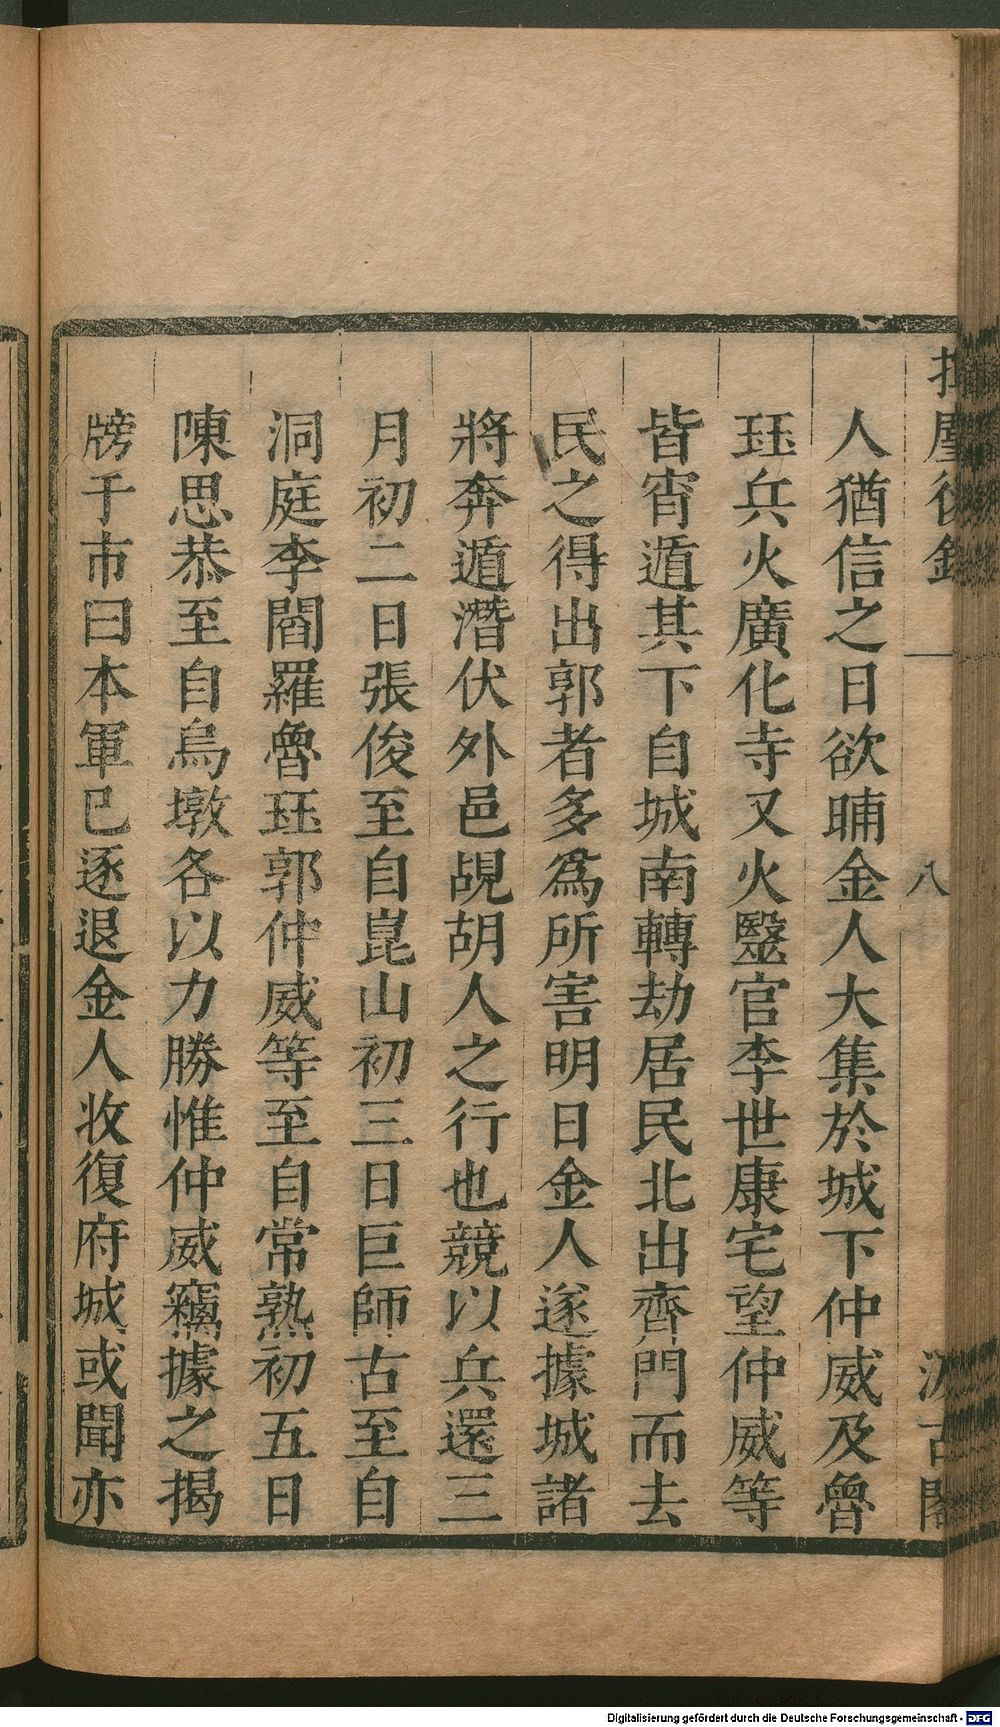 揮麈後錄
八
汲古閣
人猶信之日欲晡金人大集於城下仲威及魯
珏兵火廣化寺又火毉官李世康宅望仲威等
皆宵遁其下自城南轉劫居民北出齊門而去
民之得出郭者多爲所害明日金人遂據城諸
將奔遁潛伏外邑覘胡人之行也競以兵還三
月初二日張俊至自崑山初三日巨師古至自
洞庭李閻羅魯珏郭仲威等至自常熟初五日
陳思恭至自烏墩各以力勝惟仲威竊據之揭
牓于市曰本軍已逐退金人收復府城或聞亦
Digitalisierung gefördert durch die Deutsche Forschungsgemeinschaft - DFG